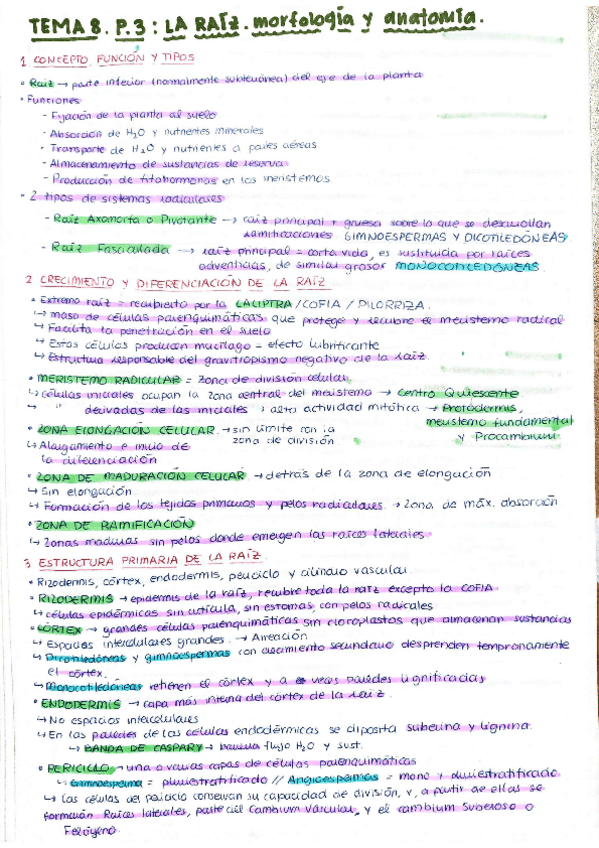 TEMA 8. P.3: LA RAÍZ. morfología y anatomía.
1 CONCEPTO, FUNCIÓN Y TIPOS
• Raíz → parte inferior (normalmente subterránea) del eje de la planta
• Funciones
- Fijación de la planta al suelo
- Absorción de H₂O y nutrientes minerales
- Transporte de H₂O y nutrientes a partes aéreas
- Almacenamiento de sustancias de reserva
- Producción de fitohormonas en los meristemos
• 2 tipos de sistemas radiculares
- Raíz Axomorfa o Pivotante → raíz principal + gruesa sobre la que se desarrollan
ramificaciones GIMNOESPERMAS Y DICOTILEDÓNEAS
- Raíz Fasciculada → raíz principal = corta vida, es sustituida por raíces
adventicias, de similar grosor MONOCOTILEDÓNEAS.
2 CRECIMIENTO Y DIFERENCIACIÓN DE LA RAÍZ
• Extremo raíz = recubierto por la CALIPTRA/COFIA / PILORRIZA.
↳ masa de células parenquimáticas que protege y recubre el meristemo radical
↳ Facilita la penetración en el suelo
↳ Estas células producen mucílago = efecto lubrificante
↳ Estructura responsable del gravitropismo negativo de la raíz.
• MERISTEMO RADICULAR = zona de división celular
↳ células iniciales ocupan la zona central del meristemo → Centro Quiescente
↳ " derivadas de las iniciales : alta actividad mitótica → Protodermis,
meristemo fundamental
y Procambium
• ZONA ELONGACIÓN CELULAR → sin límite con la
zona de división
↳ Alargamiento e inicio de
la diferenciación
• ZONA DE MADURACIÓN CELULAR → detrás de la zona de elongación
↳ Sin elongación
↳ Formación de los tejidos primarios y pelos radiculares. → zona de máx. absorción
• ZONA DE RAMIFICACIÓN
↳ Zonas maduras sin pelos donde emergen las raíces laterales
3 ESTRUCTURA PRIMARIA DE LA RAÍZ.
• Rizodermis, córtex, endodermis, periciclo y cilindro vascular
• RIZODERMIS → epidermis de la raíz, recubre toda la raíz excepto la COFIA
↳ células epidérmicas sin cutícula, sin estomas, con pelos radicales
• CÓRTEX → grandes células parenquimáticas sin cloroplastos que almacenan sustancias
↳ Espacios intercelulares grandes. → Aireación
↳ Dicotiledóneas y gimnoespermas con crecimiento secundario desprenden tempranamente
el córtex.
↳ Monocotiledóneas retienen el córtex y a veces paredes lignificadas
• ENDODERMIS → capa más interna del córtex de la raíz.
↳ No espacios intercelulares
↳ En las paredes de las células endodérmicas se deposita suberina y lignina.
↳ BANDA DE CASPARY → barrera flujo H₂O y sust.
• PERICICLO → una o varias capas de células parenquimáticas
↳ Gimnoesperma = pluriestratificado // Angiospermas = mono y pluriestratificado
↳ las células del periciclo conservan su capacidad de división, y, a partir de ellas se
formarán Raíces laterales, parte del Cambium Vascular, y el cambium Suberoso o
Felógeno